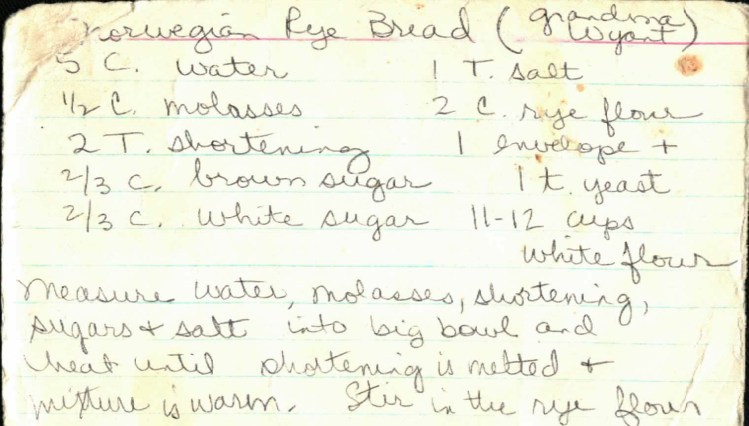 Norwegian Rye Bread (Grandma Wyant)
5 C. water 1 T. salt
1/2 C. molasses 2 C. rye flour
2 T. shortening 1 envelope +
2/3 c. brown sugar 1 t. yeast
2/3 c. white sugar 11-12 cups
white flour
Measure water, molasses, shortening,
sugars + salt into big bowl and
heat until shortening is melted +
mixture is warm. Stir in the rye flour